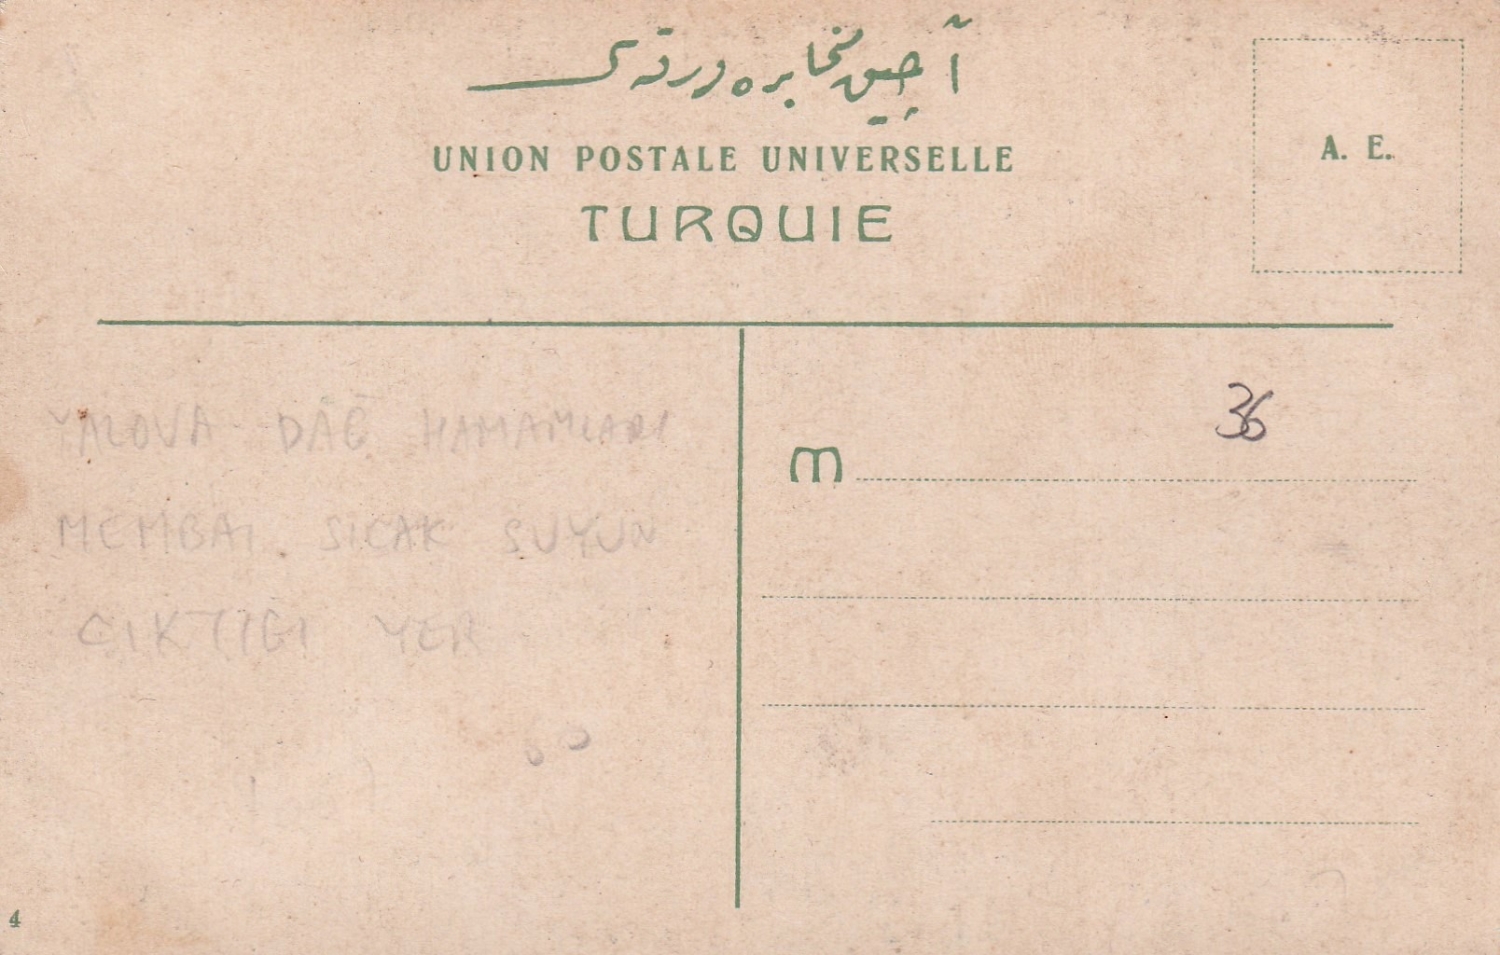 آچیق مخابره ورقه‌سی
UNION POSTALE UNIVERSELLE
TURQUIE
A. E.
YALOVA DAĞ HAMAMLARI
MEMBAI. SICAK SUYUN
ÇIKTIĞI YER
36
M
4